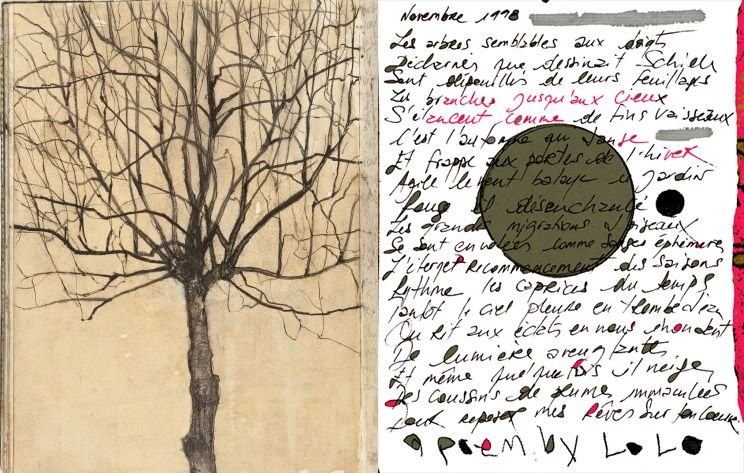 Novembre 1998
Les arbres semblables aux doigts
Décharnés que dessinait Schiele
Sont dépouillés de leurs feuillages
Les branches jusqu'aux cieux
S'élancent comme de fins vaisseaux
C'est l'automne qui danse
Et frappe aux portes de l'hiver
Agile le vent balaye le jardin
et désenchanté
Les grandes migrations d'oiseaux
Se sont envolées comme éphémères
L'éternel recommencement des saisons
Rythme les caprices du temps
Tantôt le ciel pleure en trombe d'eau
Ou rit aux éclats en nous inondant
De lumière aveuglante
Et même quelquefois il neige
Des coussins de plumes immaculées
Pour reposer mes rêves sur ton cœur
a poem by LoLo